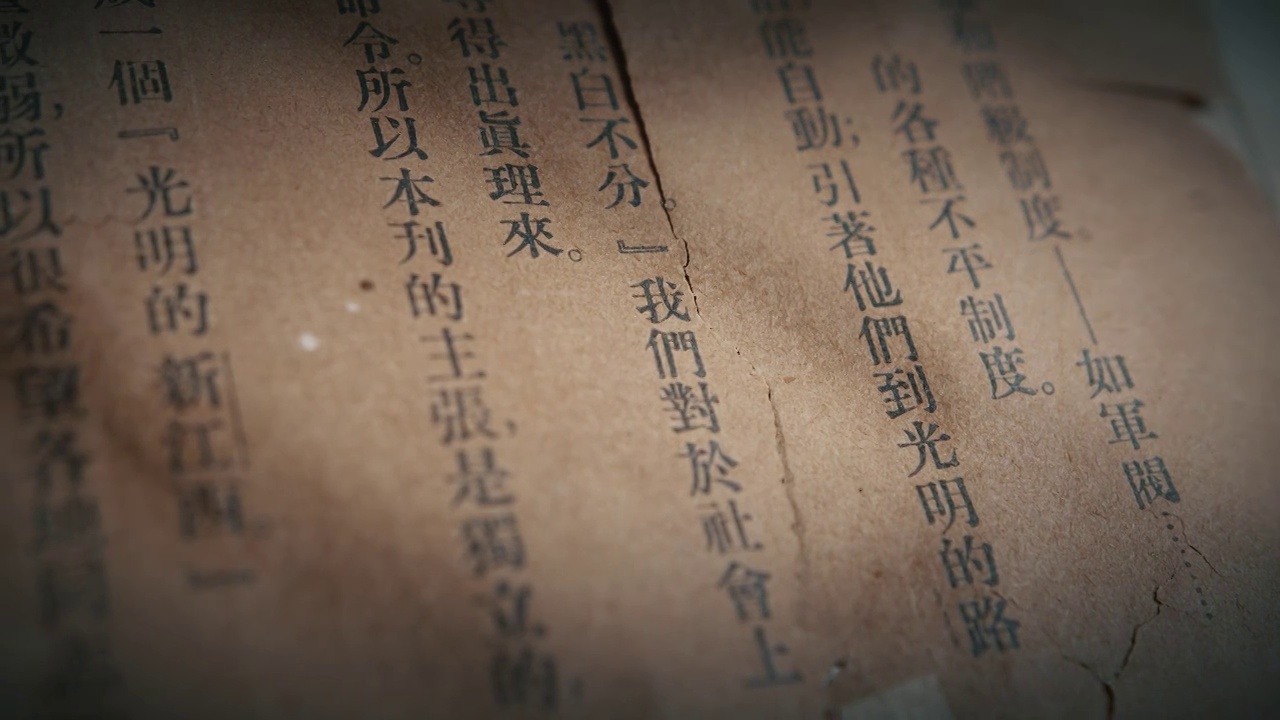 階級制度。——如軍閥……
的各種不平制度。
能自動；引著他們到光明的路
黑白不分。』我們對於社會上
得出眞理來。
命令。所以本刊的主張，是獨立的，
成一個『光明的新江西。』
敵弱，所以很希望各